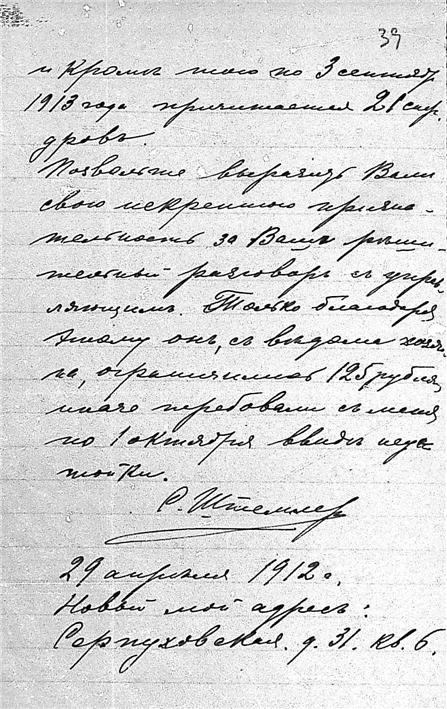 39
и кромѣ того по 3 сентября
1913 года причитается 21
дровъ.
Позвольте выразить Вамъ
свою искреннюю призна-
тельность за Вашъ рѣши-
тельный разговоръ съ упра-
вляющимъ. Только благодаря
этому онъ, съ вѣдома хозяи-
на, ограничился 125 рублями,
иначе требовали съ меня
по 1 октября ввидѣ неус-
тойки.
С. Штеммлер
29 апрѣля 1912 г.
Новый мой адресъ:
Серпуховская. д. 31. кв. 6.